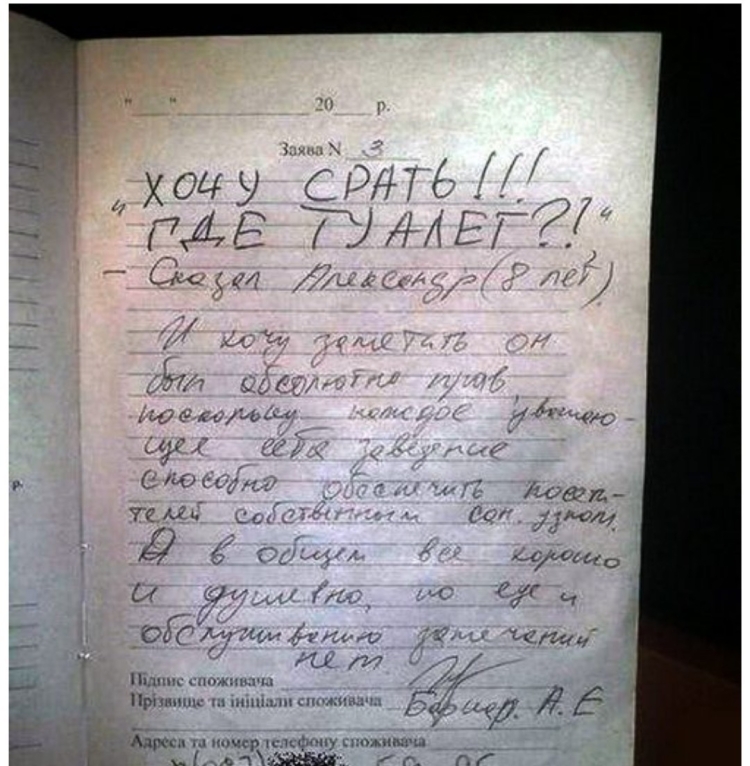 "___"____________ 20___ р.
Заява N 3
"ХОЧУ СРАТЬ!!!
ГДЕ ТУАЛЕТ?!"
– Сказал Александр (8 лет).
И хочу заметить он
был абсолютно прав
поскольку каждое уважаю-
щее себя заведение
способно обеспечить посети-
телей собственным сан. узлом.
А в общем все хорошо
и душевно, по еде и
обслуживанию замечаний
нет.
Підпис споживача
Прізвище та ініціали споживача А. Е
Адреса та номер телефону споживача
р.